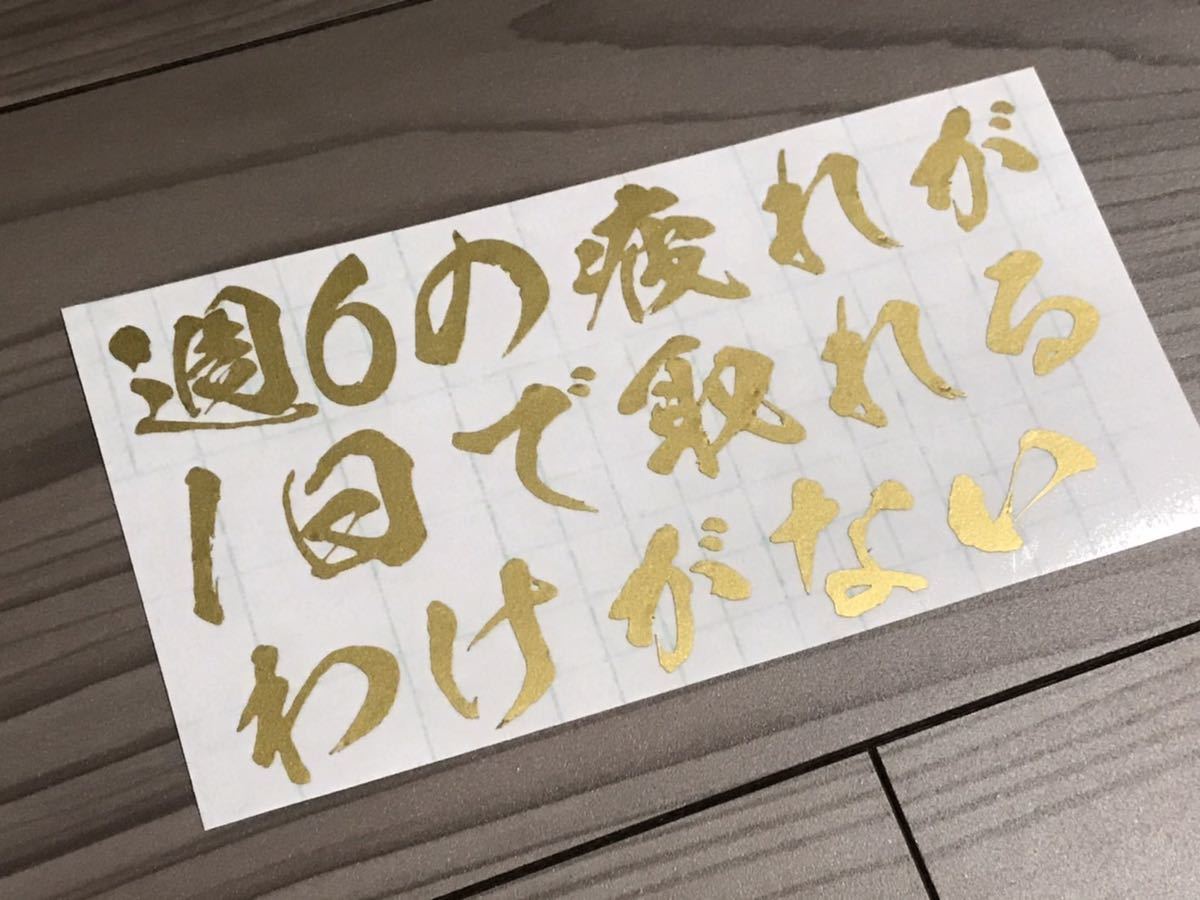 週6の疲れが
1日で取れる
わけがない